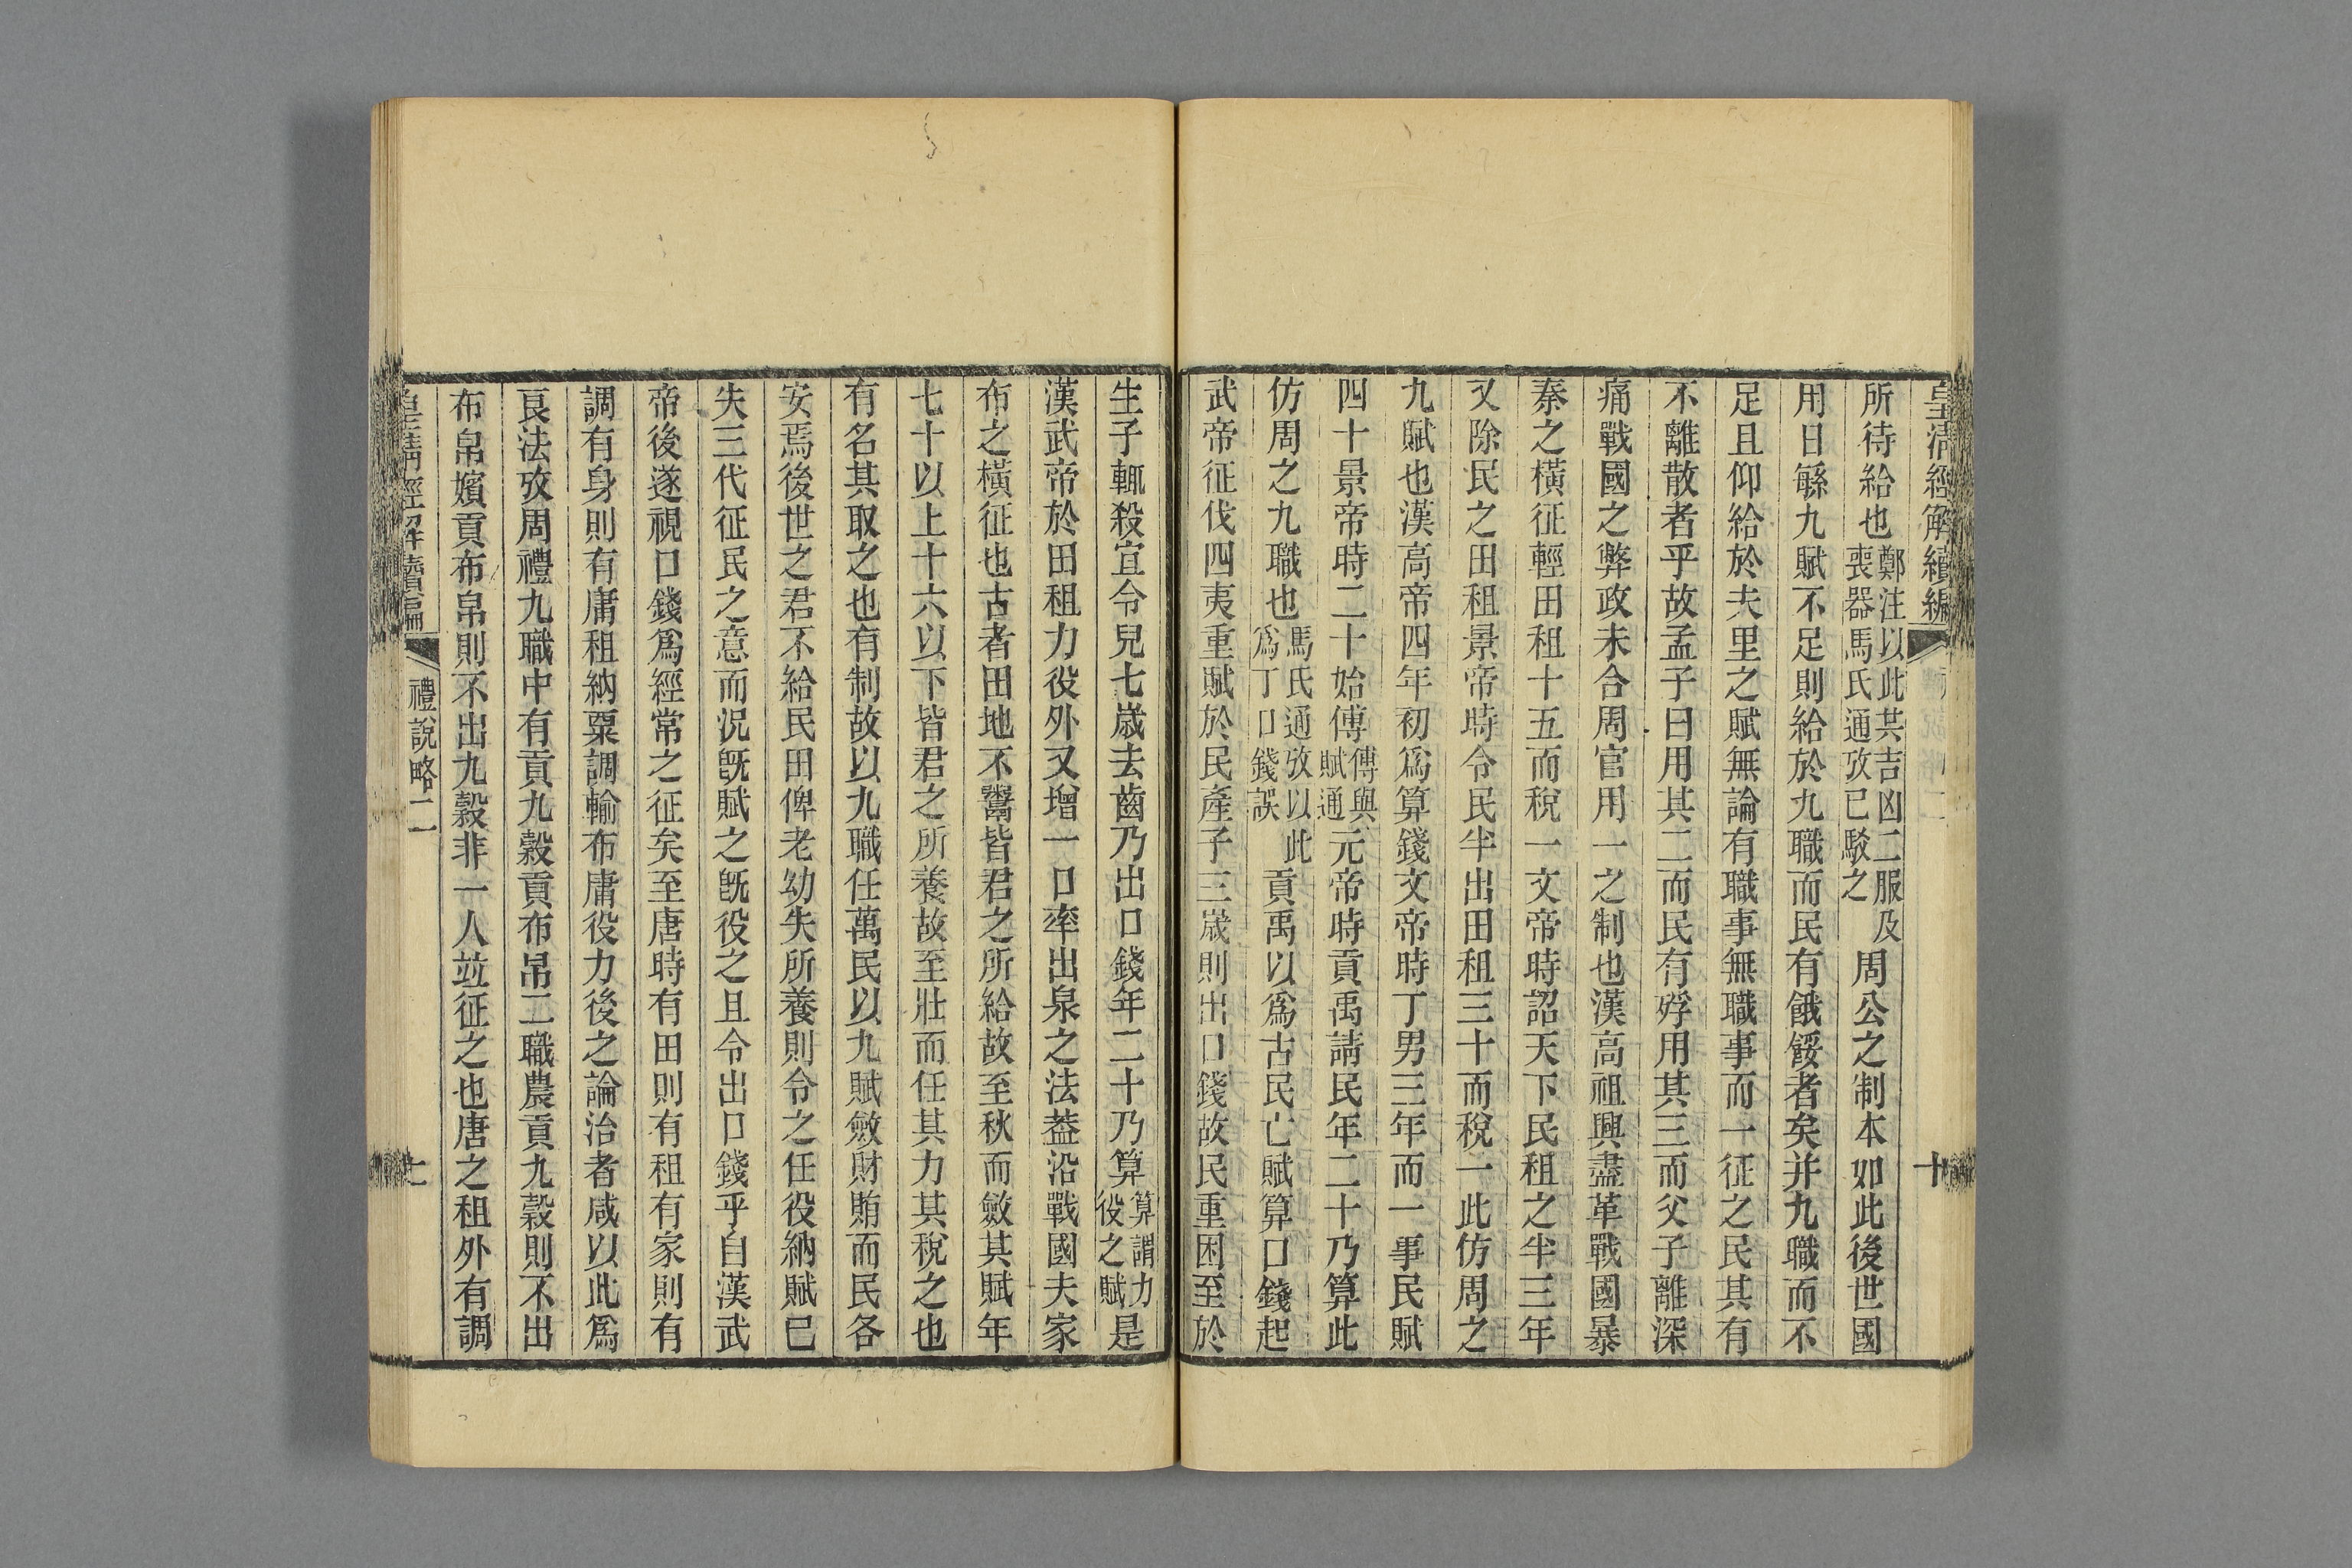 皇清經解續編
十
所待給也鄭注以此共吉凶二服及喪器馬氏通攷已駁之周公之制本如此後世國
用日緐九賦不足則給於九職而民有餓餒者矣并九職而不
足且仰給於夫里之賦無論有職事無職事而一征之民其有
不離散者乎故孟子曰用其二而民有殍用其三而父子離深
痛戰國之弊政未合周官用一之制也漢高祖興盡革戰國暴
秦之橫征輕田租十五而稅一文帝時詔天下民租之半三年
又除民之田租景帝時令民半出田租三十而稅一此仿周之
九賦也漢高帝四年初爲算錢文帝時丁男三年而一事民賦
四十景帝時二十始傅傅與賦通元帝時貢禹請民年二十乃算此
仿周之九職也馬氏通攷以此爲丁口錢誤貢禹以爲古民亡賦算口錢起
武帝征伐四夷重賦於民產子三歲則出口錢故民重困至於
生子輒殺宜令兒七歲去齒乃出口錢年二十乃算算謂力役之賦是
漢武帝於田租力役外又增一口率出泉之法葢沿戰國夫家
布之橫征也古者田地不鬻皆君之所給故至秋而斂其賦年
七十以上十六以下皆君之所養故至壯而任其力其稅之也
有名其取之也有制故以九職任萬民以九賦斂財賄而民各
安焉後世之君不給民田俾老幼失所養則令之任役納賦已
失三代征民之意而況旣賦之旣役之且令出口錢乎自漢武
帝後遂視口錢爲經常之征矣至唐時有田則有租有家則有
調有身則有庸租納粟調輸布庸役力後之論治者咸以此爲
良法攷周禮九職中有貢九穀貢布帛二職農貢九穀則不出
布帛嬪貢布帛則不出九穀非一人竝征之也唐之租外有調
皇清經解續編
禮說略二